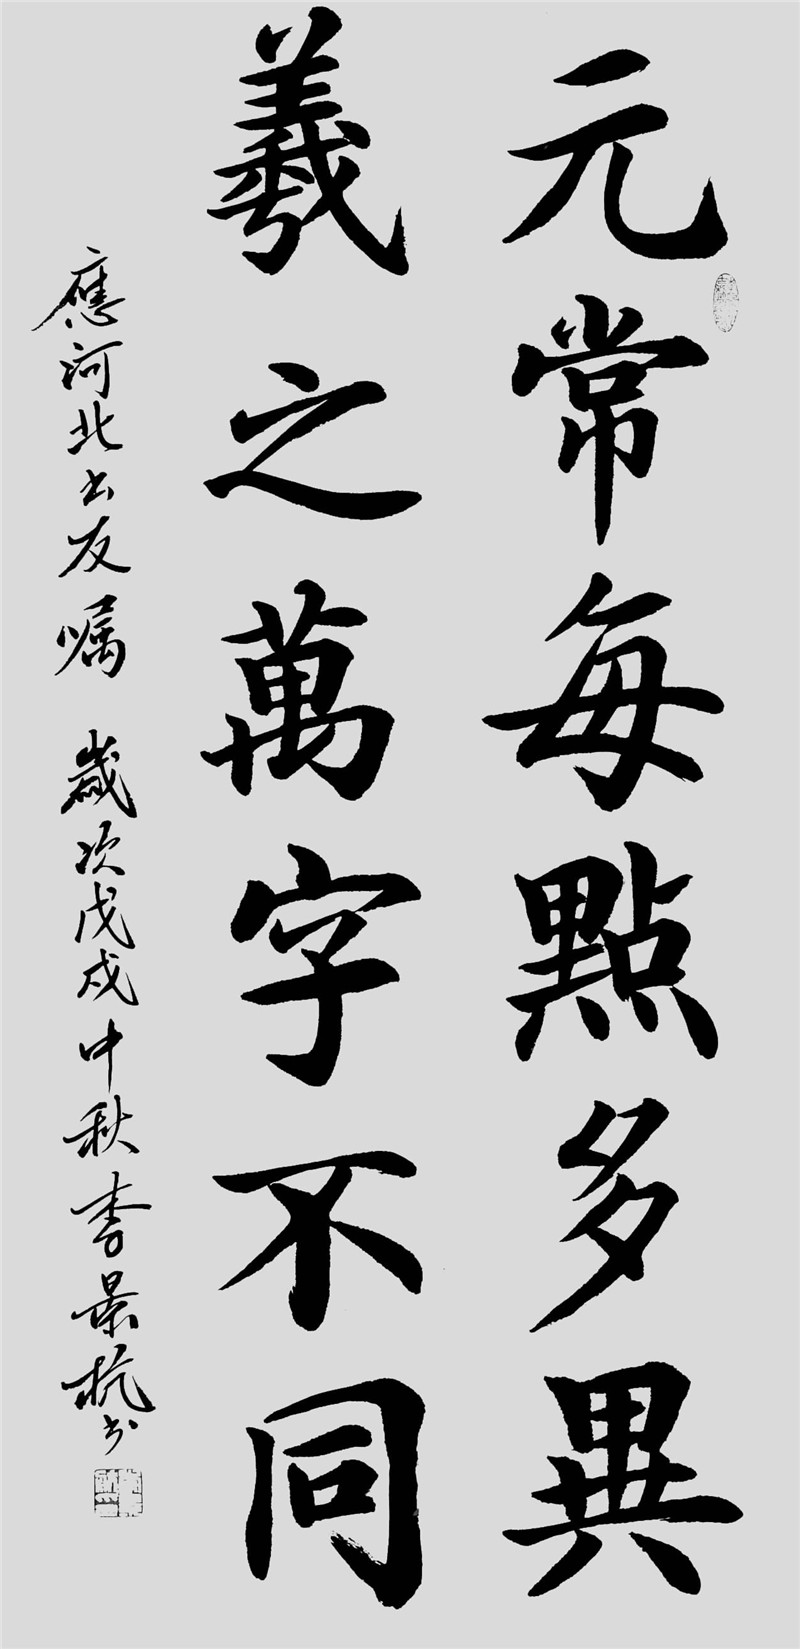 元常每點多異
羲之萬字不同
應河北书友嘱 歲次戊戌中秋李景杭书